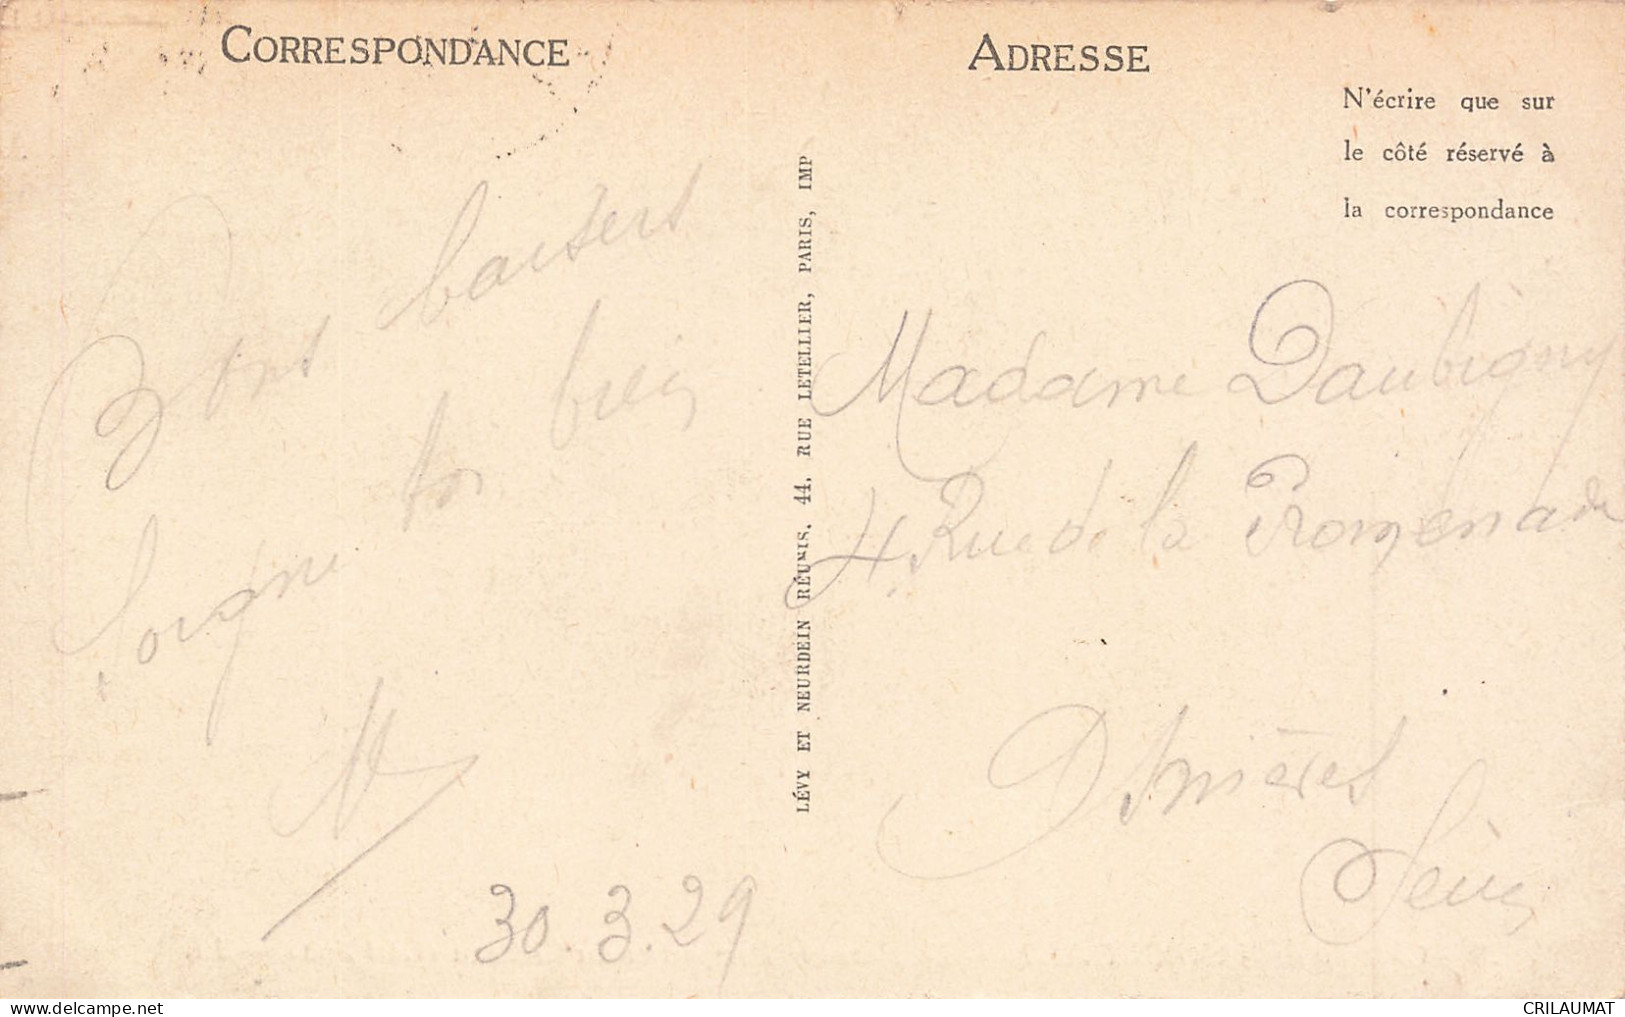 CORRESPONDANCE
Bons baisers
Soigne toi bien
30.3.29
LÉVY ET NEURDEIN RÉUNIS. 44, RUE LETELLIER, PARIS, IMP
ADRESSE
N'écrire que sur
le côté réservé à
la correspondance
Madame Daubigny
4 Rue de la Promenade
Asnières
Seine
delcampe.net
CRILAUMAT